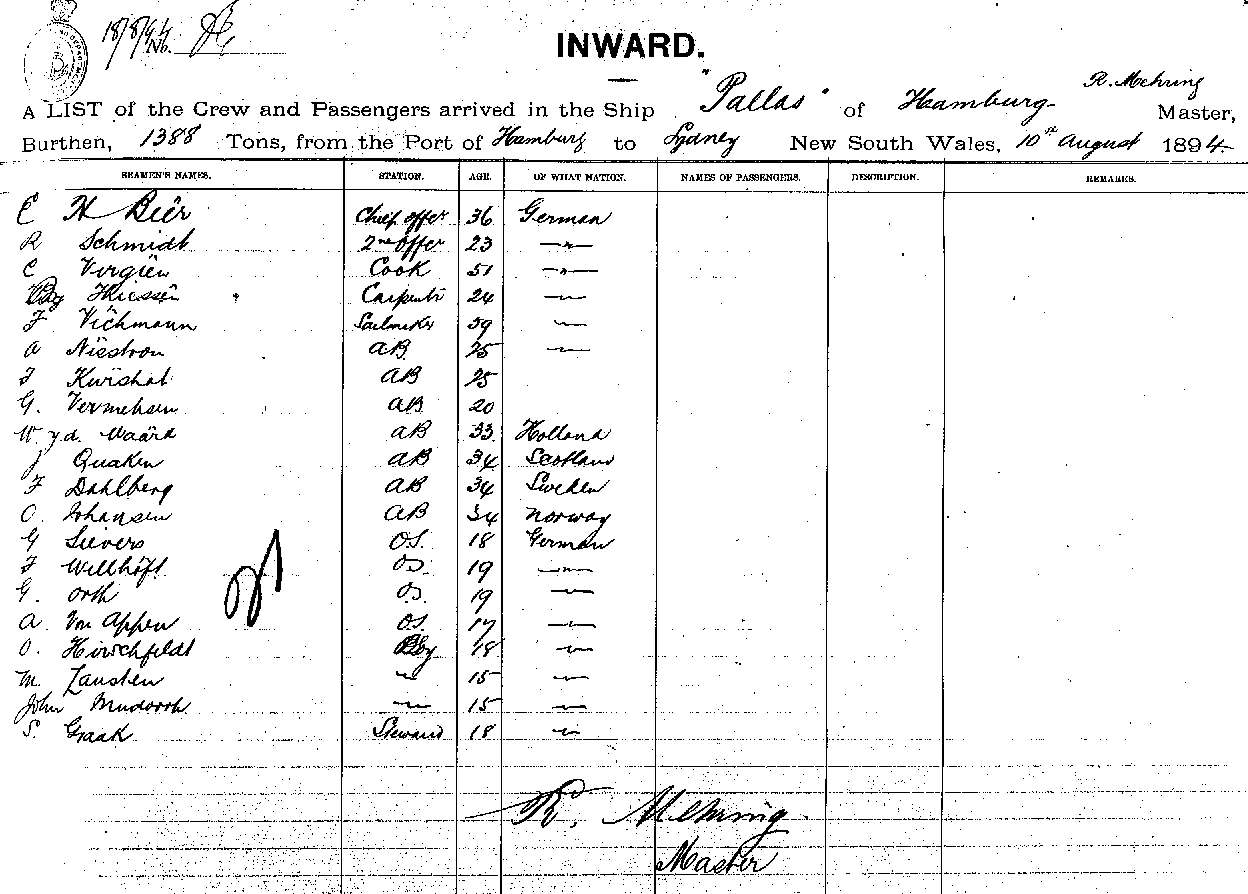 18/8/94
No.
INWARD.
R. Mehring
A LIST of the Crew and Passengers arrived in the Ship "Pallas" of Hamburg Master,
Burthen, 1388 Tons, from the Port of Hamburg to Sydney New South Wales, 10th August 1894
SEAMEN'S NAMES. STATION. AGE. OF WHAT NATION. NAMES OF PASSENGERS. DESCRIPTION. REMARKS.
C H Bier Chief offer 36 German
R Schmidt 2nd offer 23 —"—
C Virgien Cook 51 —"—
Thiessen Carpentr 24 —"—
F Vichmann Sailmaker 59 —"—
A AB 25 —"—
F AB 25
G. Vermehsen AB 20
W v.d. Waard AB 33 Holland
J Quaken AB 34 Scotland
F Dahlberg AB 34 Sweden
O. Johansen AB 34 Norway
G Sievers O.S. 18 German
F Willhöft O.S. 19 —"—
G. Orth O.S. 19 —"—
A. Von Appen O.S. 17 —"—
O. Hirschfeldt Boy 18 —"—
M. —"— 15 —"—
John —"— 15 —"—
S. Graak Steward 18 —"—
R. Mehring
Master